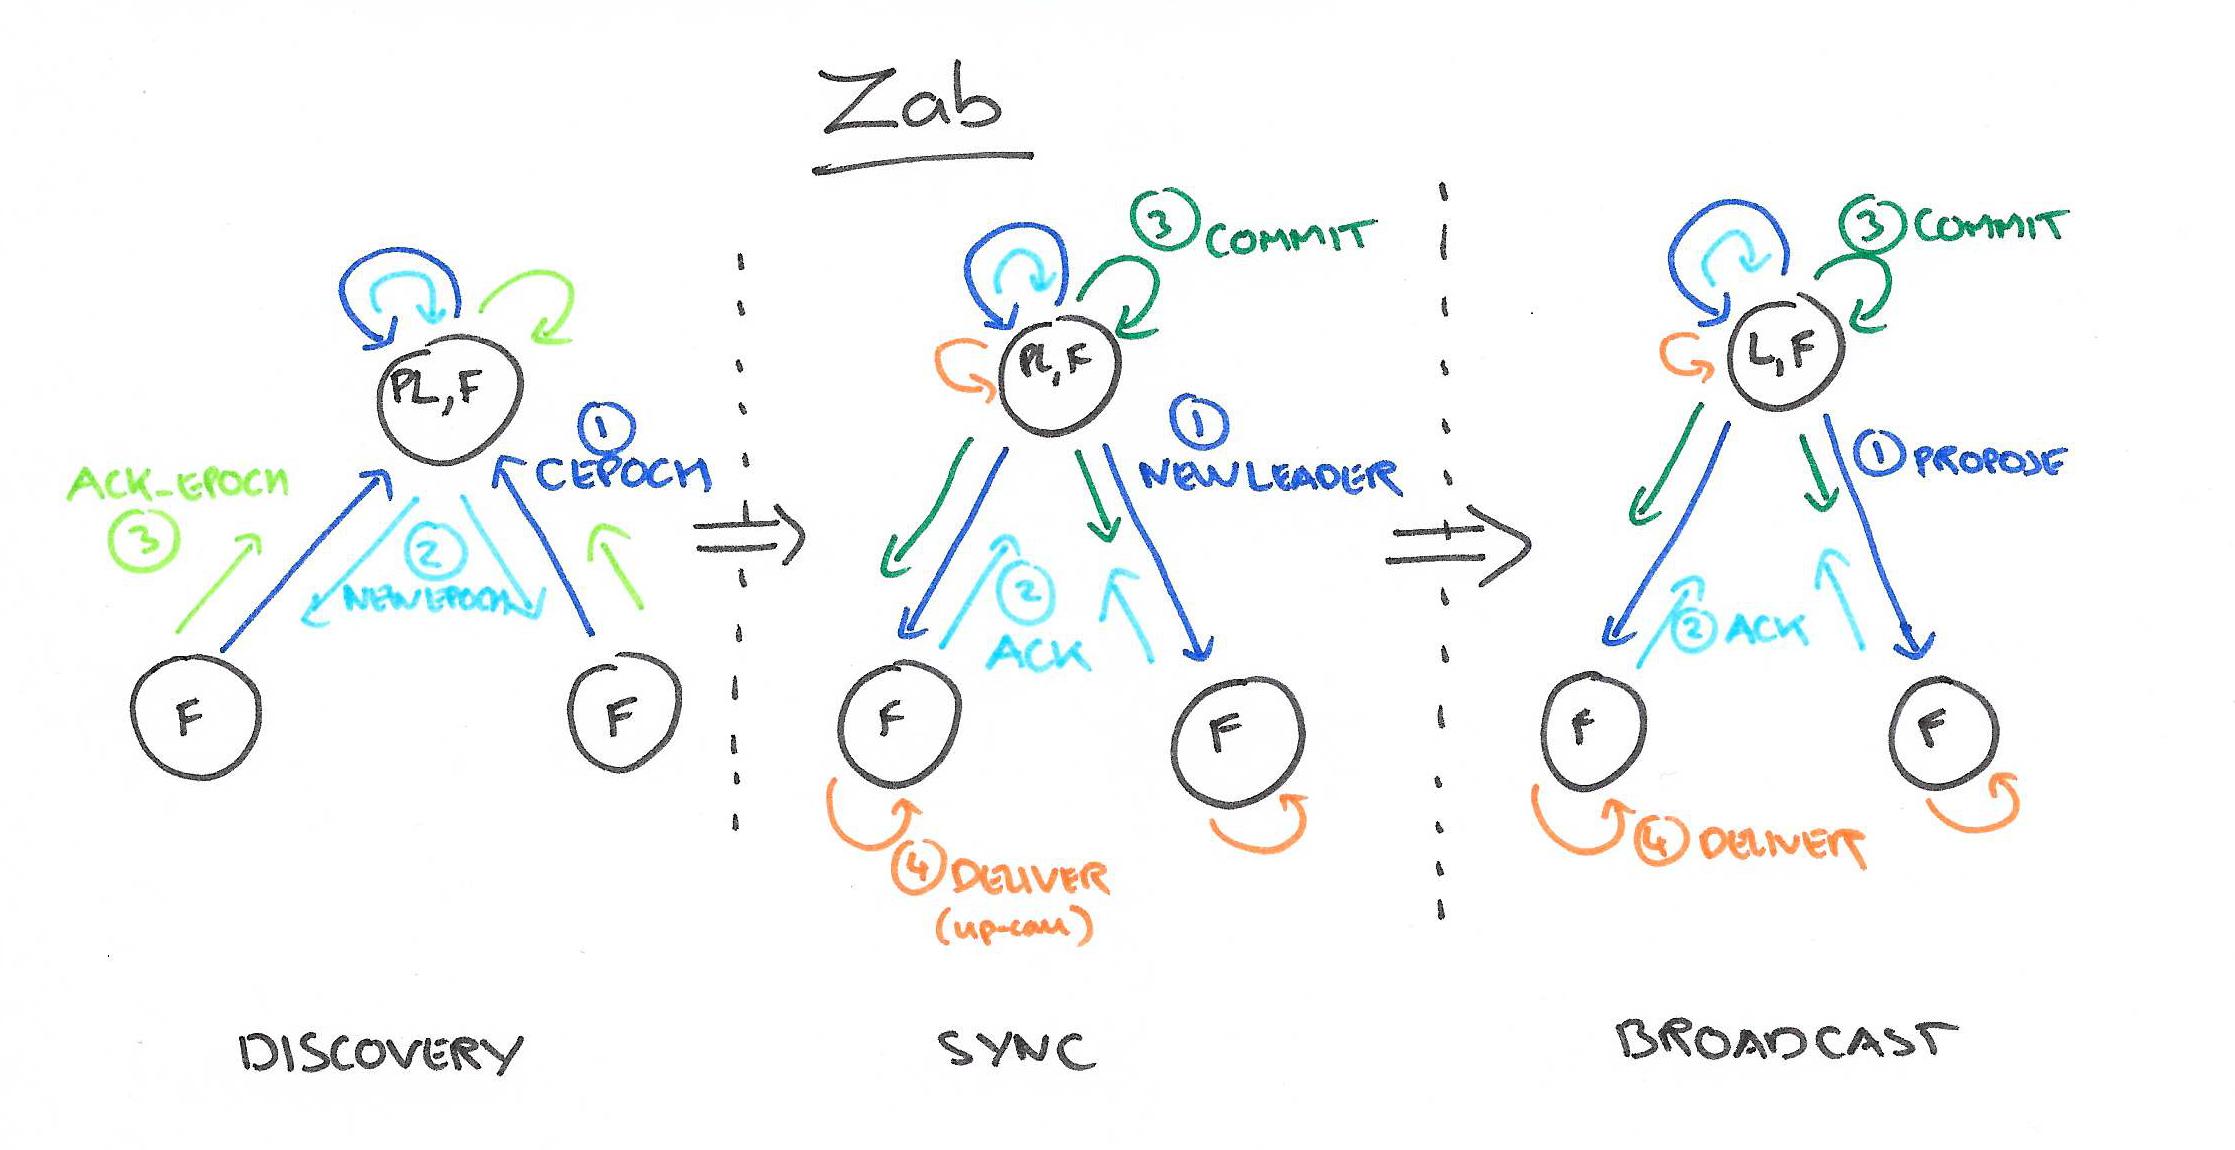 Zab
PL,F
① CEPOCH
ACK-EPOCH
③
②
NEWEPOCH
F
F
DISCOVERY
③ COMMIT
PL,F
①
NEWLEADER
②
ACK
F
F
④ DELIVER
(up-call)
SYNC
③ COMMIT
L,F
① PROPOSE
② ACK
F
F
④ DELIVER
BROADCAST